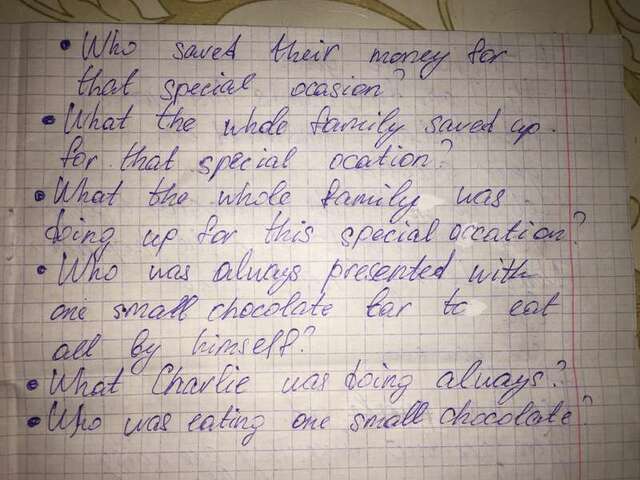 • Who saved their money for
that special ocasion?
• What the whole family saved up
for that special ocation?
• What the whole family was
doing up for this special occation?
• Who was always presented with
one small chocolate bar to eat
all by himself?
• What Charlie was doing always?
• Who was eating one small chocolate?